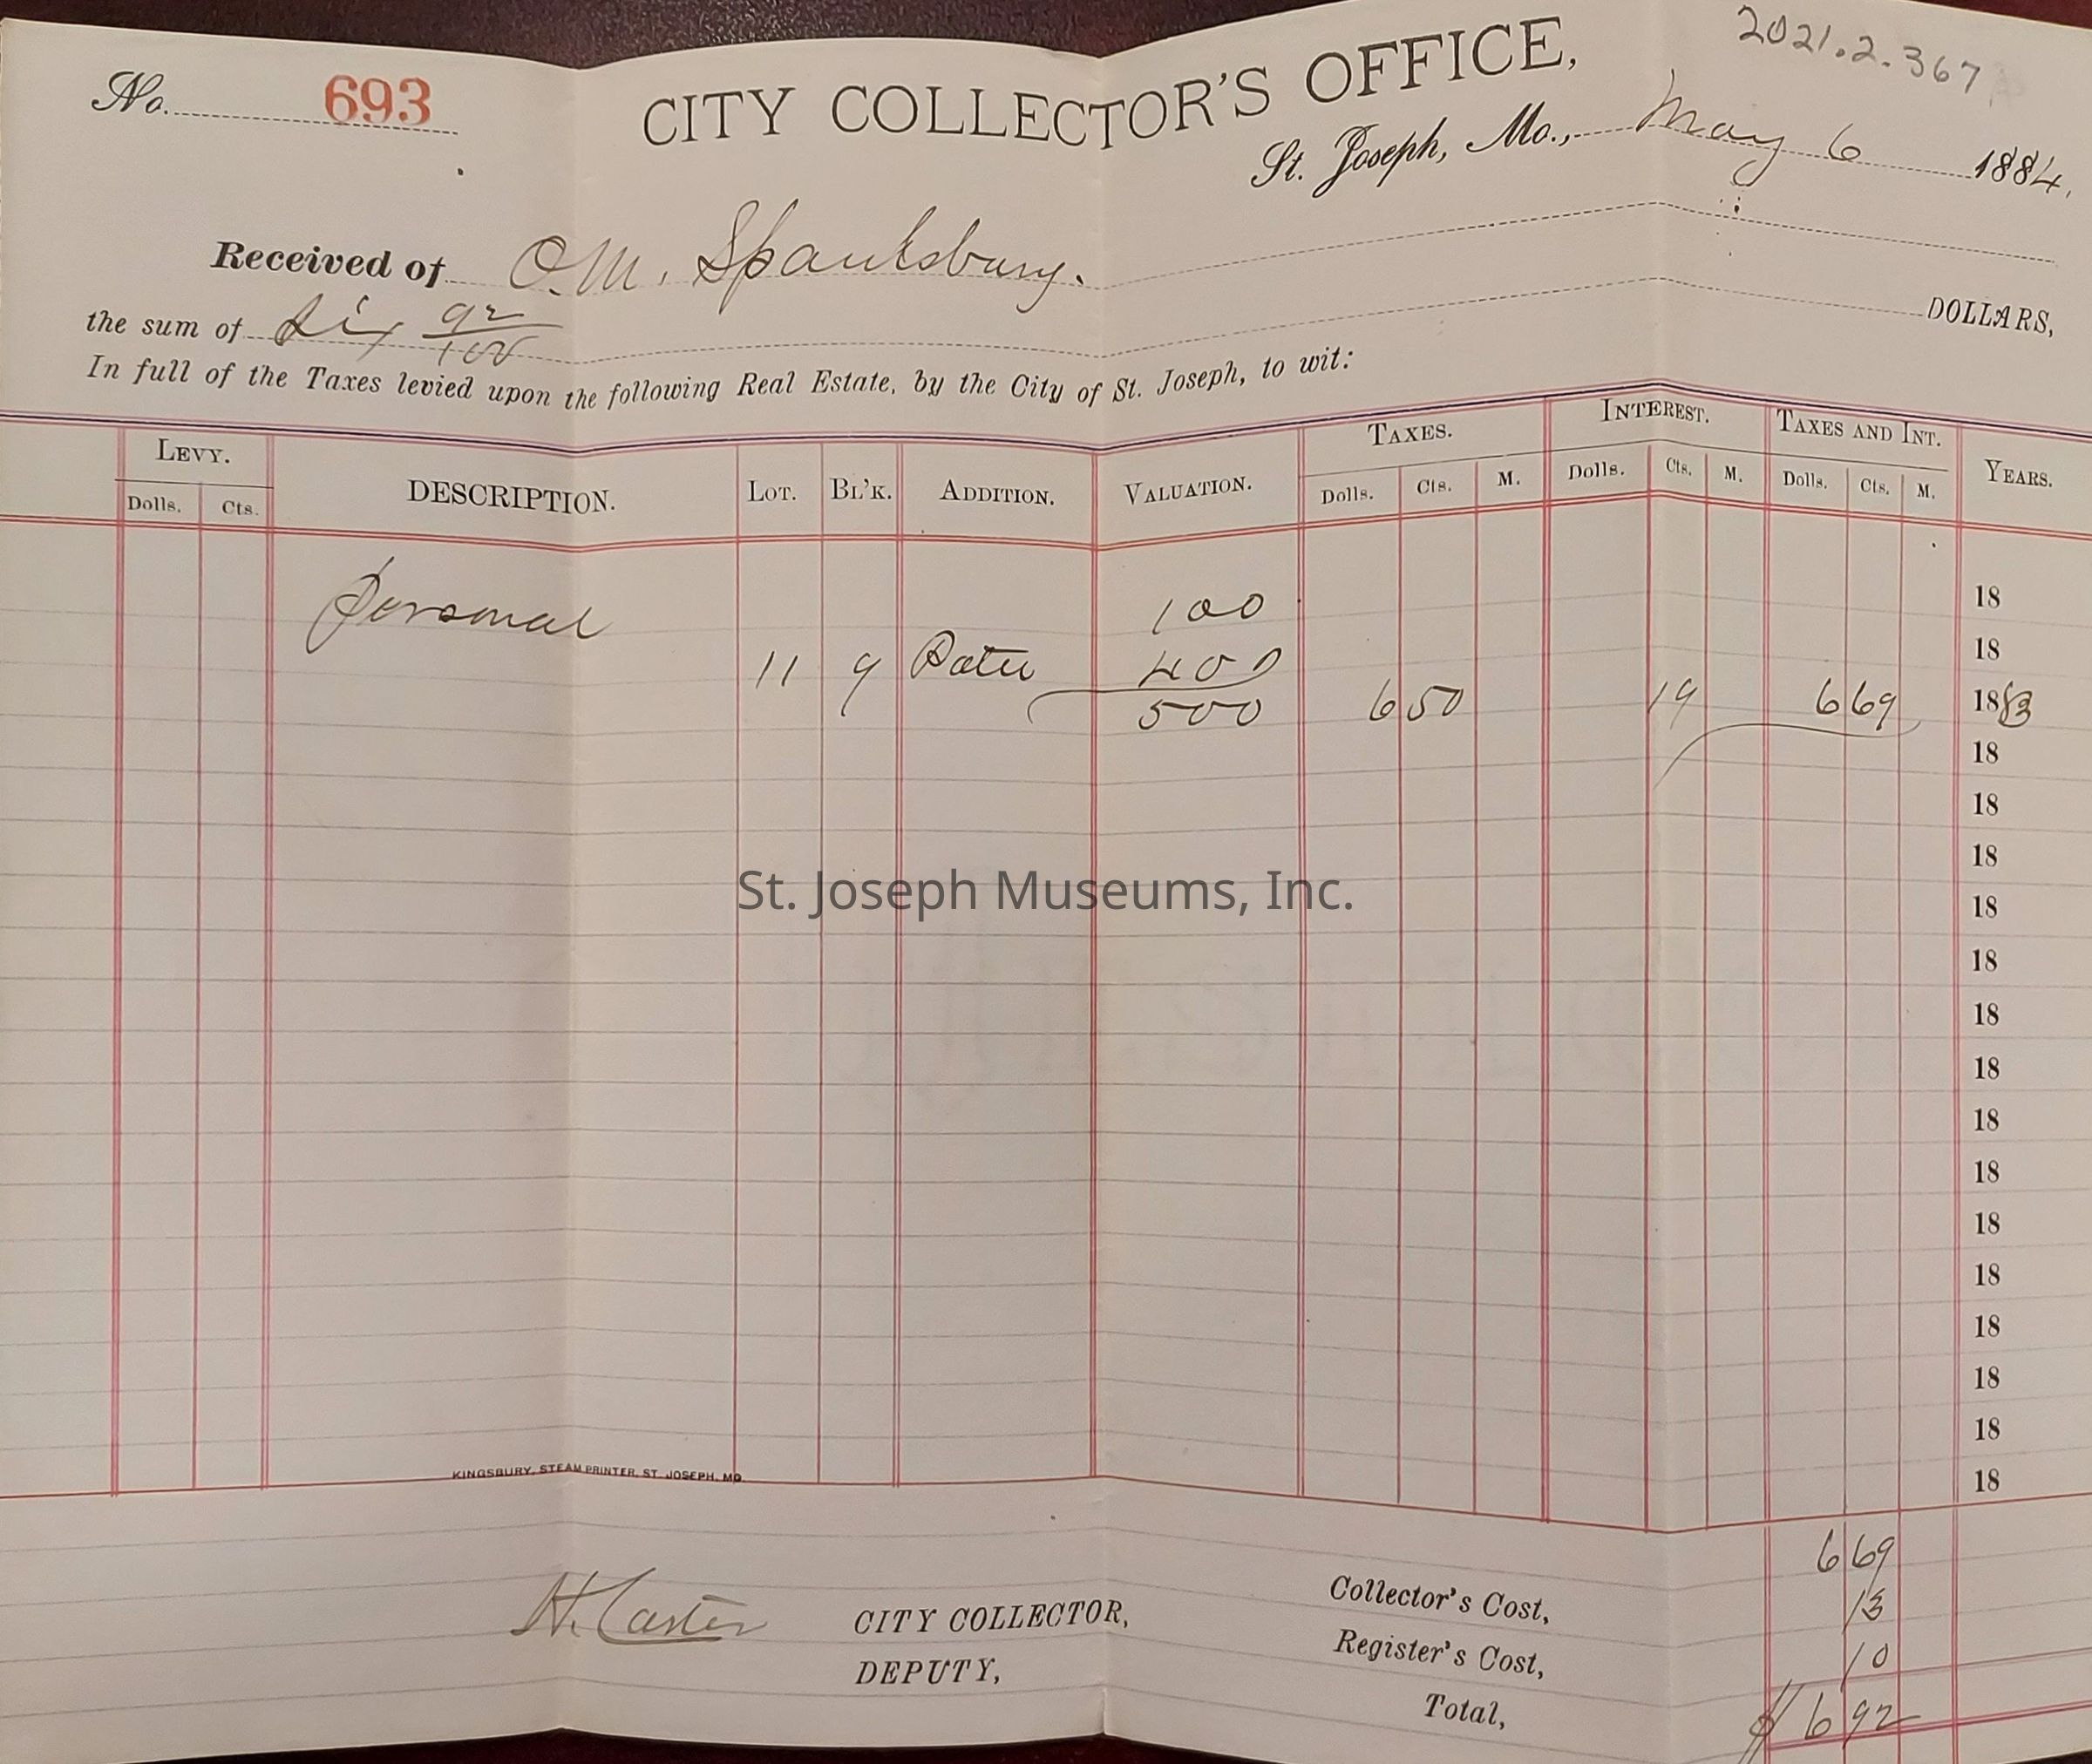 2021.2.367
No. 693
CITY COLLECTOR'S OFFICE,
St. Joseph, Mo., May 6 1884.
Received of O.M. Spanksbury.
the sum of Six 92/100 DOLLARS,
In full of the Taxes levied upon the following Real Estate, by the City of St. Joseph, to wit:
LEVY. DESCRIPTION. LOT. BL'K. ADDITION. VALUATION. TAXES. INTEREST. TAXES AND INT. YEARS.
Dolls. Cts. Dolls. Cts. M. Dolls. Cts. M. Dolls. Cts. M.
Personal 100 18
11 9 400 18
500 6 50 19 6 69 1883
18
18
18
18
18
18
18
18
18
18
18
18
18
18
18
St. Joseph Museums, Inc.
KINGSBURY, STEAM PRINTER, ST. JOSEPH, MO.
6 69
H. Carter CITY COLLECTOR, Collector's Cost, 13
DEPUTY, Register's Cost, 10
Total, $6 92